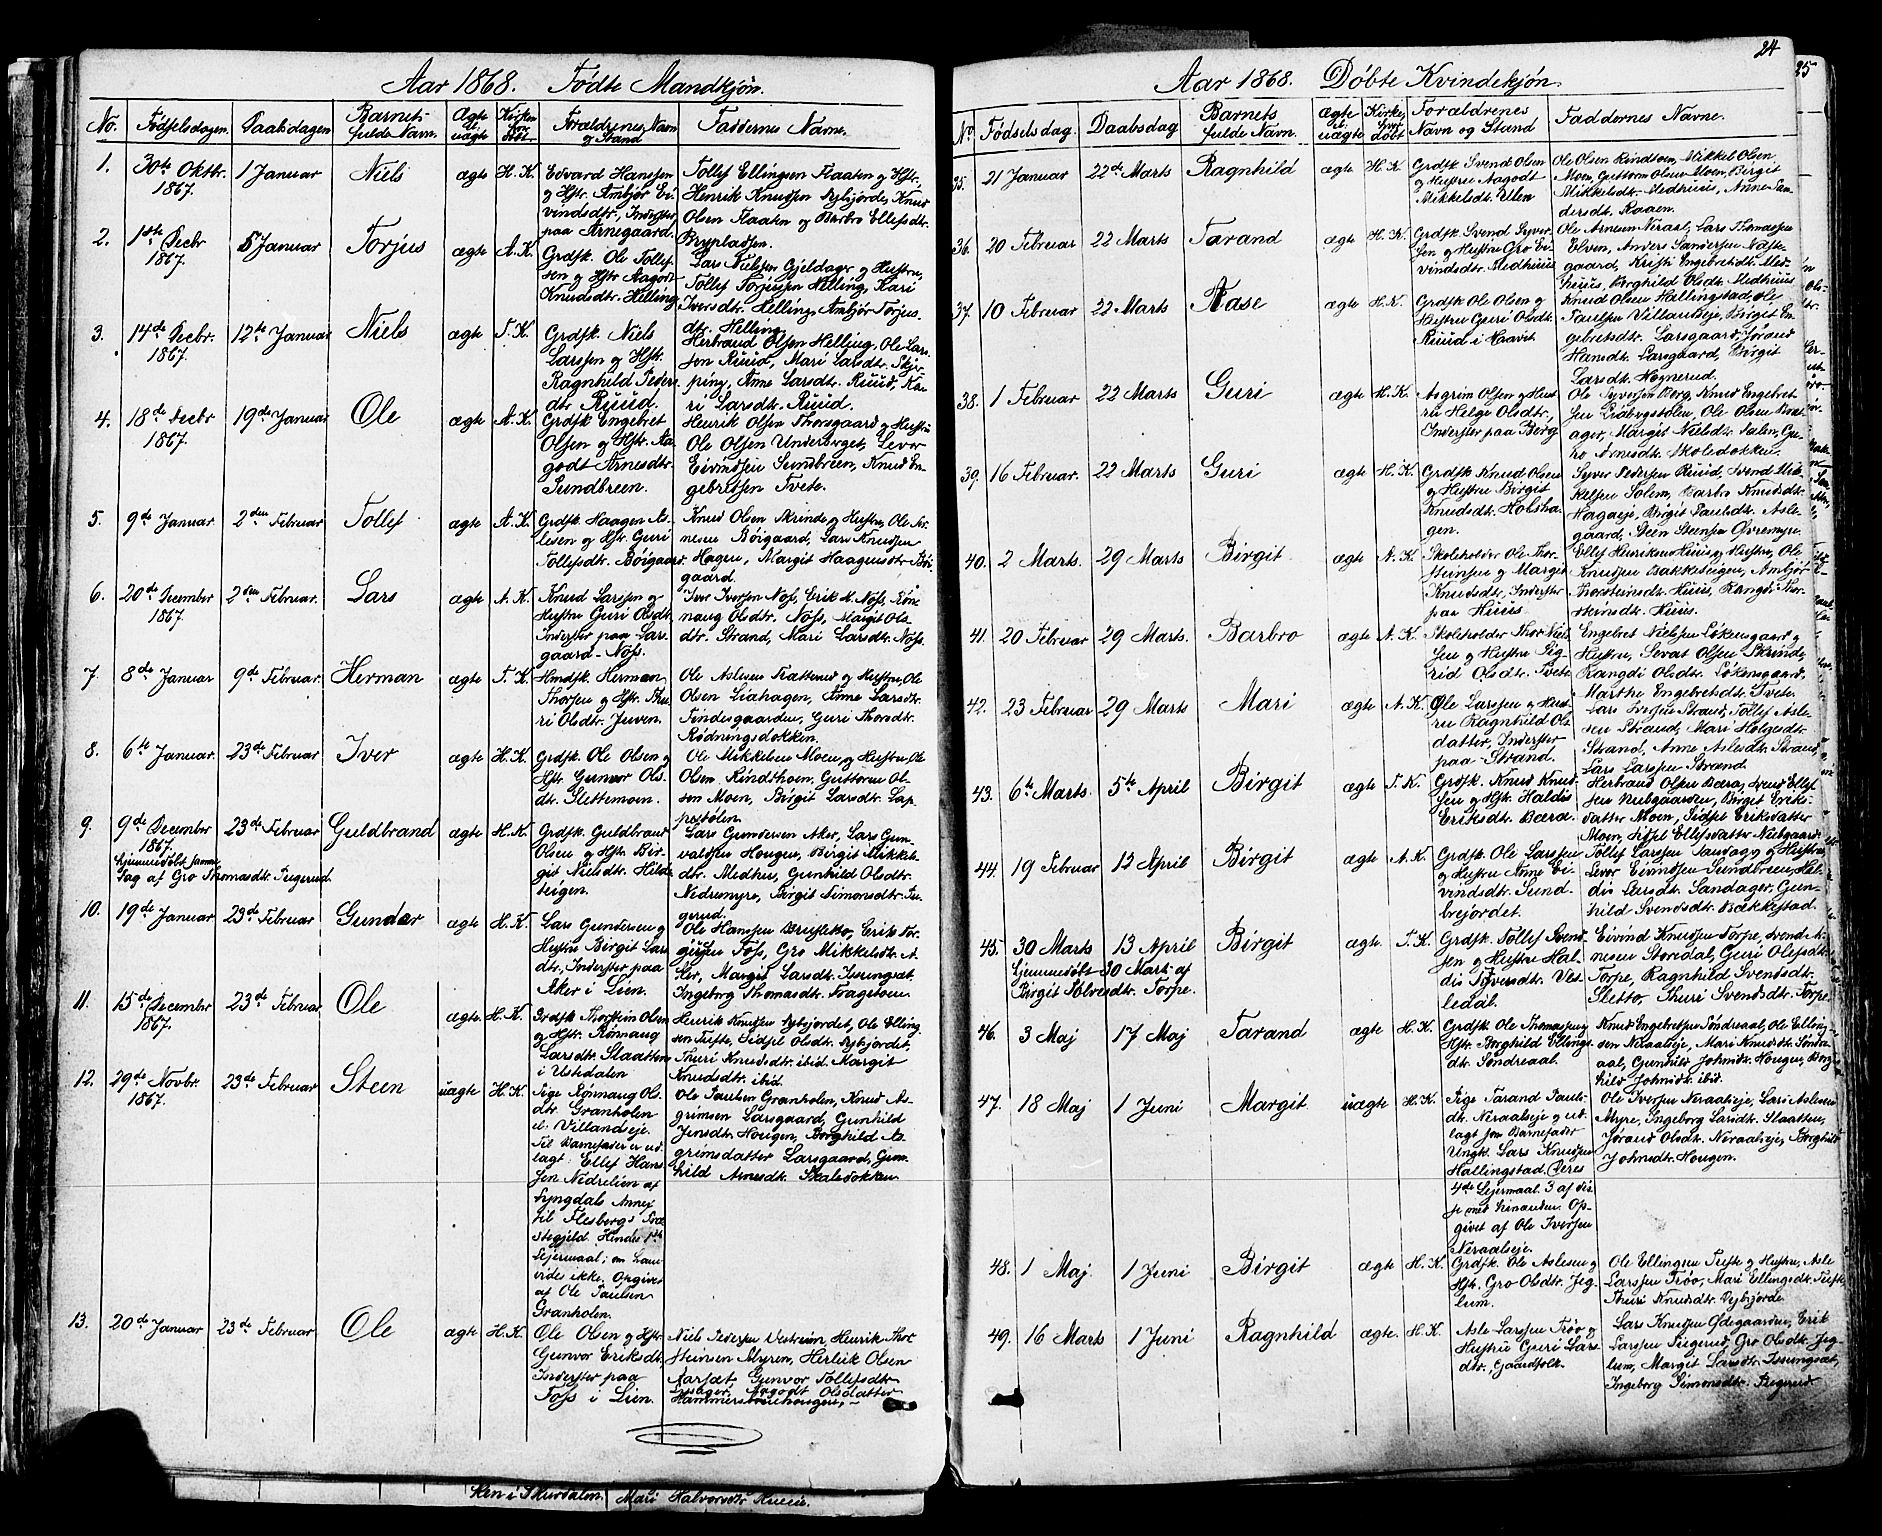 Aar 1868. Fødte Mandkjøn.
No. Fødselsdagen. Daabsdagen Barnets fulde Navn. Ægte el. uægte Kirken hvor døbt. Forældrenes Navn og Stand Faddernes Navne.
1. 30te Oktbr. 1867. 1 Januar Niels ægte H. K.
Edvard Hansen
og Hstr. Ambjør Ei-
vindsdtr., Inderster
paa Arnegaard.
Tollef Ellingsen Flaaten og Hstr.
Henrik Knudsen Nybjørde, Knud
Olsen Flaaten og Barbro Ellefsdtr.
Brypladsen.
2. 1ste Decbr 1867. 5 Januar Torjus ægte A. K.
Grdsk. Ole Tollef-
sen og Hstr. Aagodt
Knudsdtr. Helling
Lars Nielsen Gjeldager og Hustru,
Tollef Torjussen Helling, Kari
Iversdtr. Helling, Ambjør Torjus-
dtr. Helling.
3. 14de Decbr. 1867. 12te Januar Niels ægte T. K.
Grdsk. Niels
Larssen og Hstr.
Ragnhild Peders-
dtr Ruud.
Herbrand Olsen Helling, Ole Lars-
sen Ruud, Mari Larsdtr. Skjer-
ping, Anne Larsdtr. Ruud, Ka-
ri Larsdtr. Ruud.
4. 18de Decbr 1867. 19de Januar Ole ægte A. K.
Grdsk Engebret
Olsen og Hstr. Aa-
godt Arnesdtr.
Sundbreen.
Henrik Olsen Thorsgaard og Hustru
Ole Olsen Underberget, Lever
Eivindsen Sundbreen, Knud En-
gebretsen Tvete.
5. 9de Januar 2den Februar Tollef ægte A. K.
Grdsk. Haagen As-
lesen og Hstr. Guri
Tollefsdtr. Bøigaard.
Knud Olsen Skrinde og Hustru, Ole Ar-
nesen Bøigaard, Lars Knudsen
Hagen, Margit Haagensdtr Bøi-
gaard.
6. 20de December 1867. 2den Februar. Lars ægte A. K.
Knud Larssen og
Hustru Guri Olsdtr.
Inderster paa Lars-
gaard-Noss.
Iver Iversen Noss, Erik N. Noss, Røn-
naug Olsdtr. Noss, Margit Ols-
dtr. Strand, Mari Larsdtr. Noss.
7. 8de Januar 9de Februar. Herman ægte T. K.
Hmdsk. Herman
Thorsen og Hstr. Thu-
ri Olsdtr. Juven.
Ole Aslesen Trætterud og Hustru, Ole
Olsen Liahagen, Anne Larsdtr
Tendesgaarden, Guri Thorsdtr.
Rødningsdokken.
8. 6te Januar. 23de Februar Iver ægte H. K.
Grdsk. Ole Olsen og
Hstr. Gunvor Ols-
dtr. Slettemoen.
Ole Mikkelsen Moen og Hustru, Ole
Olsen Rindthoen, Guttorm Ol-
sen Moen, Birgit Larsdtr. Lap-
pestølen.
9. 9de December 1867. 23de Februar Guldbrand ægte H. K.
Hjemmedøbt samme
Dag af Gro Thomasdtr. Tregerud.
Grdsk. Guldbrand
Olsen og Hstr. Bir-
git Nielsdtr. Hilde-
teigen.
Lars Gundersen Aker, Lars Gun-
valdsen Hougen, Birgit Mikkels-
dtr. Medhus, Gunhild Olsdtr.
Nedremyre, Birgit Simonsdtr. Tre-
gerud.
10. 19de Januar 23de Februar Gunder ægte H. K.
Lars Gundersen og
Hustru Birgit Lars-
dtr., Inderster paa
Aker i Lien.
Ole Hansen Brusletto, Erik Tor-
gersen Foss, Gro Mikkelsdtr. A-
ker, Margit Larsdtr. Issungsæt
Ingeborg Thomasdtr. Fragotoen.
11. 15de December 1867. 23de Februar Ole ægte. H. K.
Grdsk. Thorstein Olsen
og Hstr. Rønnaug
Larsdtr. Slaatten
i Ustedalen
Henrik Knudsen Nybjørdet, Ole Elling-
sen Tufte, Sidsel Olsdtr. Nybjørdet,
Thuri Knudsdtr ibid. Margit
Knudsdtr. ibid.
12. 29de Novbr. 1867. 23de Februar Steen uægte H. K.
Pige Rønnaug Ols-
dtr. Granholen
el. Villandeie.
Til Barnefader er ud-
lagt: Ellef Hans-
sen Nedrelien af
Lyngdals Annex
til Flesbergs Præ-
stegjeld. Hendes 1ste
Leiermaal; om Lan-
vides ikke. Opgivet
af Ole Paulsen
Granholen.
Ole Paulsen Granholen, Knud As-
grimsen Larsgaard, Gunhild
Jensdtr. Hougen, Borghild As-
grimsdatter Larsgaard, Gun-
hild Arnesdtr. Skoledokken
13. 20de Januar 23de Februar Ole ægte H. K.
Ole Olsen og Hstr
Gunvor Eriksdtr.
Inderster paa
Foss i Lien.
Niels Pedersen Ustreim, Henrik Thor-
steinsen Myren, Herleik Olsen
Aarsæt, Gunvor Tollefsdtr
Lysager, Aagodt Olsdatter
Hammersbøenhougen.
Aar 1868. Døbte Kvindekjøn. 24
25
No. Fødselsdag. Daabsdag Barnets fulde Navn. Ægte el. uægte Kirke, hvor døbt Forældrenes Navn og Stand Faddernes Navne.
35. 21 Januar 22de Marts Ragnhild ægte H. K
Grdsk Svend Olsen
og Hustru Aagodt
Mikkelsdt. Ulen
Ole Olsen Rindtoen, Mikkel Olsen
Moen, Guttorm Olsen Moen, Birgit
Mikkelsdtr. Medhuus, Anne San-
dersdt. Raaen.
36. 20 Februar 22 Marts Tarand ægte H. K.
Grdsk Svend Syver-
sen og Hustru Gro Ei-
vindsdtr. Medhuus
Ole Arnesen Neraal, Lars Thomassen
Elven, Anders Sandersen Næste-
gaard, Kristi Engebretsdt. Med-
huus, Borghild Olsdt. Medhuus
37. 10 Februar 22 Marts Aase ægte H. K.
Grdsk Ole Olsen og
Hustru Guri Olsdt.
Ruud i Haavet
Knud Olsen Hallingstad, Ole
Paulsen Villandseje, Birgit En-
gebretsdtr. Larsgaard, Jørand
Hansdt. Larsgaard, Birgit
Larsdt. Høgnerud.
38. 1 Februar 22 Marts Guri ægte H. K.
Asgrim Olsen og Hust-
ru Helge Olsdtr.,
Inderster paa Berg
Ole Syversen Berg, Knud Engebret-
sen Præbystølen, Ole Olsen Brat-
ager, Margit Nielsdt. Dalen, Gu-
ro Arnesdt. Skoledokken.
39. 16 Februar. 22 Marts Guri ægte H. K
Grdsk Knud Olsen
og Hustru Birgit
Knudsdt. Holsha-
gen.
Syver Pedersen Ruud, Svend Mik-
kelsen Solem, Barbro Knudsdt.
Hagaeje, Birgit Paulsdt. Asle-
gaard, Steen Steensen Øvremyre.
40. 2 Marts. 29 Marts Birgit ægte A. K
Skoleholder Ole Thor-
steinsen og Margit
Knudsdt., Inderster
paa Huus
Ellef Henriksen Huus og Hustru, Ole
Knudsen Bakketeigen, Ambjør
Thorsteinsdt. Huus, Rangdi Thor-
steinsdt. Huus.
41. 20 Februar 29 Marts. Barbro ægte A. K
Skoleholder Thor Niel-
sen og Hustru Sig-
rid Olsdt. Tvete
Engebret Nielsen Løkensgaard og
Hustru, Sevat Olsen Skrinde,
Rangdi Olsdtr. Løkensgaard,
Marthe Engebretsdt. Tvete.
42. 23 Februar 29 Marts Mari ægte A. K.
Ole Larssen og Hust-
ru Ragnhild Ols-
datter, Inderster
paa Strand.
Lars Iversen Strand, Tollef Asle-
sen Strand, Mari Helgesdt.
Strand, Anne Aslesdt. Strand,
Lars Larssen Strand.
43. 6te Marts. 5te April Birgit ægte T. K.
Grdsk. Knud Knud-
sen og Hstr. Haldis
Eriksdt. Bæra
Herbrand Olsen Bæra, Svend Ellef-
sen Nubgaarden, Birgit Eriks-
datter Moen, Sidsel Eriksdatter
Moen, Sidsel Ellefsdatter Nubgaard
44 19 Februar 12 April Birgit ægte A. K.
Grdsk. Ole Larssen
og Hustru Anne Ei-
vindsdt. Sund-
brejordet.
Tollef Larssen Sandager og Hustru,
Lever Eivindsen Sundbreen, Hal-
dis Larsdt. Sandager, Gun-
hild Svendsdt. Bækkestad.
45. 30 Marts 13 April Birgit ægte. T. K
Hjemmedøbt 30 Mart. af
Birgit Tolvesdtr. Torpe.
Grdsk. Tollef Svend-
sen og Hustru Hal-
dis Syversdt. Ves-
ledal.
Eivind Knudsen Torpe, Svend Ar-
nesen Storedal, Guri Olefsdtr.
Torpe, Ragnhild Svendsdt.
Sletto, Thuri Svendsdt. Torpe
46. 3 Maj 17 Maj Tarand ægte H. K.
Grdsk. Ole Thomassen og
Hstr. Borghild Ellings-
dt. Søndreaal.
Knud Engebretsen Søndreaal, Ole Elling-
sen Neraalseje, Mari Knudsdt. Søndre-
aal, Gunhild Johnsdt. Hougen, Borg-
hild Johnsdt. ibid.
47. 18 Maj 1 Juni Margit uægte H. K.
Pige Tarand Pauls-
dt. Neraalseje og ud-
lagt som Barnefader
Ungk. Lars Knudsen
Hallingstad. Deres
4de Lejermaal. 3 af dis-
se med hinanden. Op-
givet af Ole Iversen
Neraalseje.
Ole Iversen Neraalseje, Lars Aslesen
Myre, Ingeborg Larsdt. Slaatten,
Jørand Olsdt. Neraalseje, Borghild
Johnsdtr. Hougen.
48. 1 Maj. 1 Juni Birgit ægte H. K.
Grdsk. Ole Aslesen og
Hstr. Gro Olsdtr. Jeg-
lum.
Ole Ellingsen Tufte og Hustru, Asle
Larssen Trøo, Mari Ellingsdt. Tufte,
Thuri Knudsdt. Nybjørde
49. 16 Marts 1 Juni Ragnhild ægte. H. K
Asle Larssen Trøo og
Hustru Guri Lars-
dtr., Gaardfolk.
Lars Knudsen Ødegaarden, Erik
Larssen Tregerud, Gro Olsdt. Jeg-
lum, Margit Larsdt. Issungsæt,
Ingeborg Simonsdt. Tregerud
Skeni Skurdalen. Mari Halvorsdtr